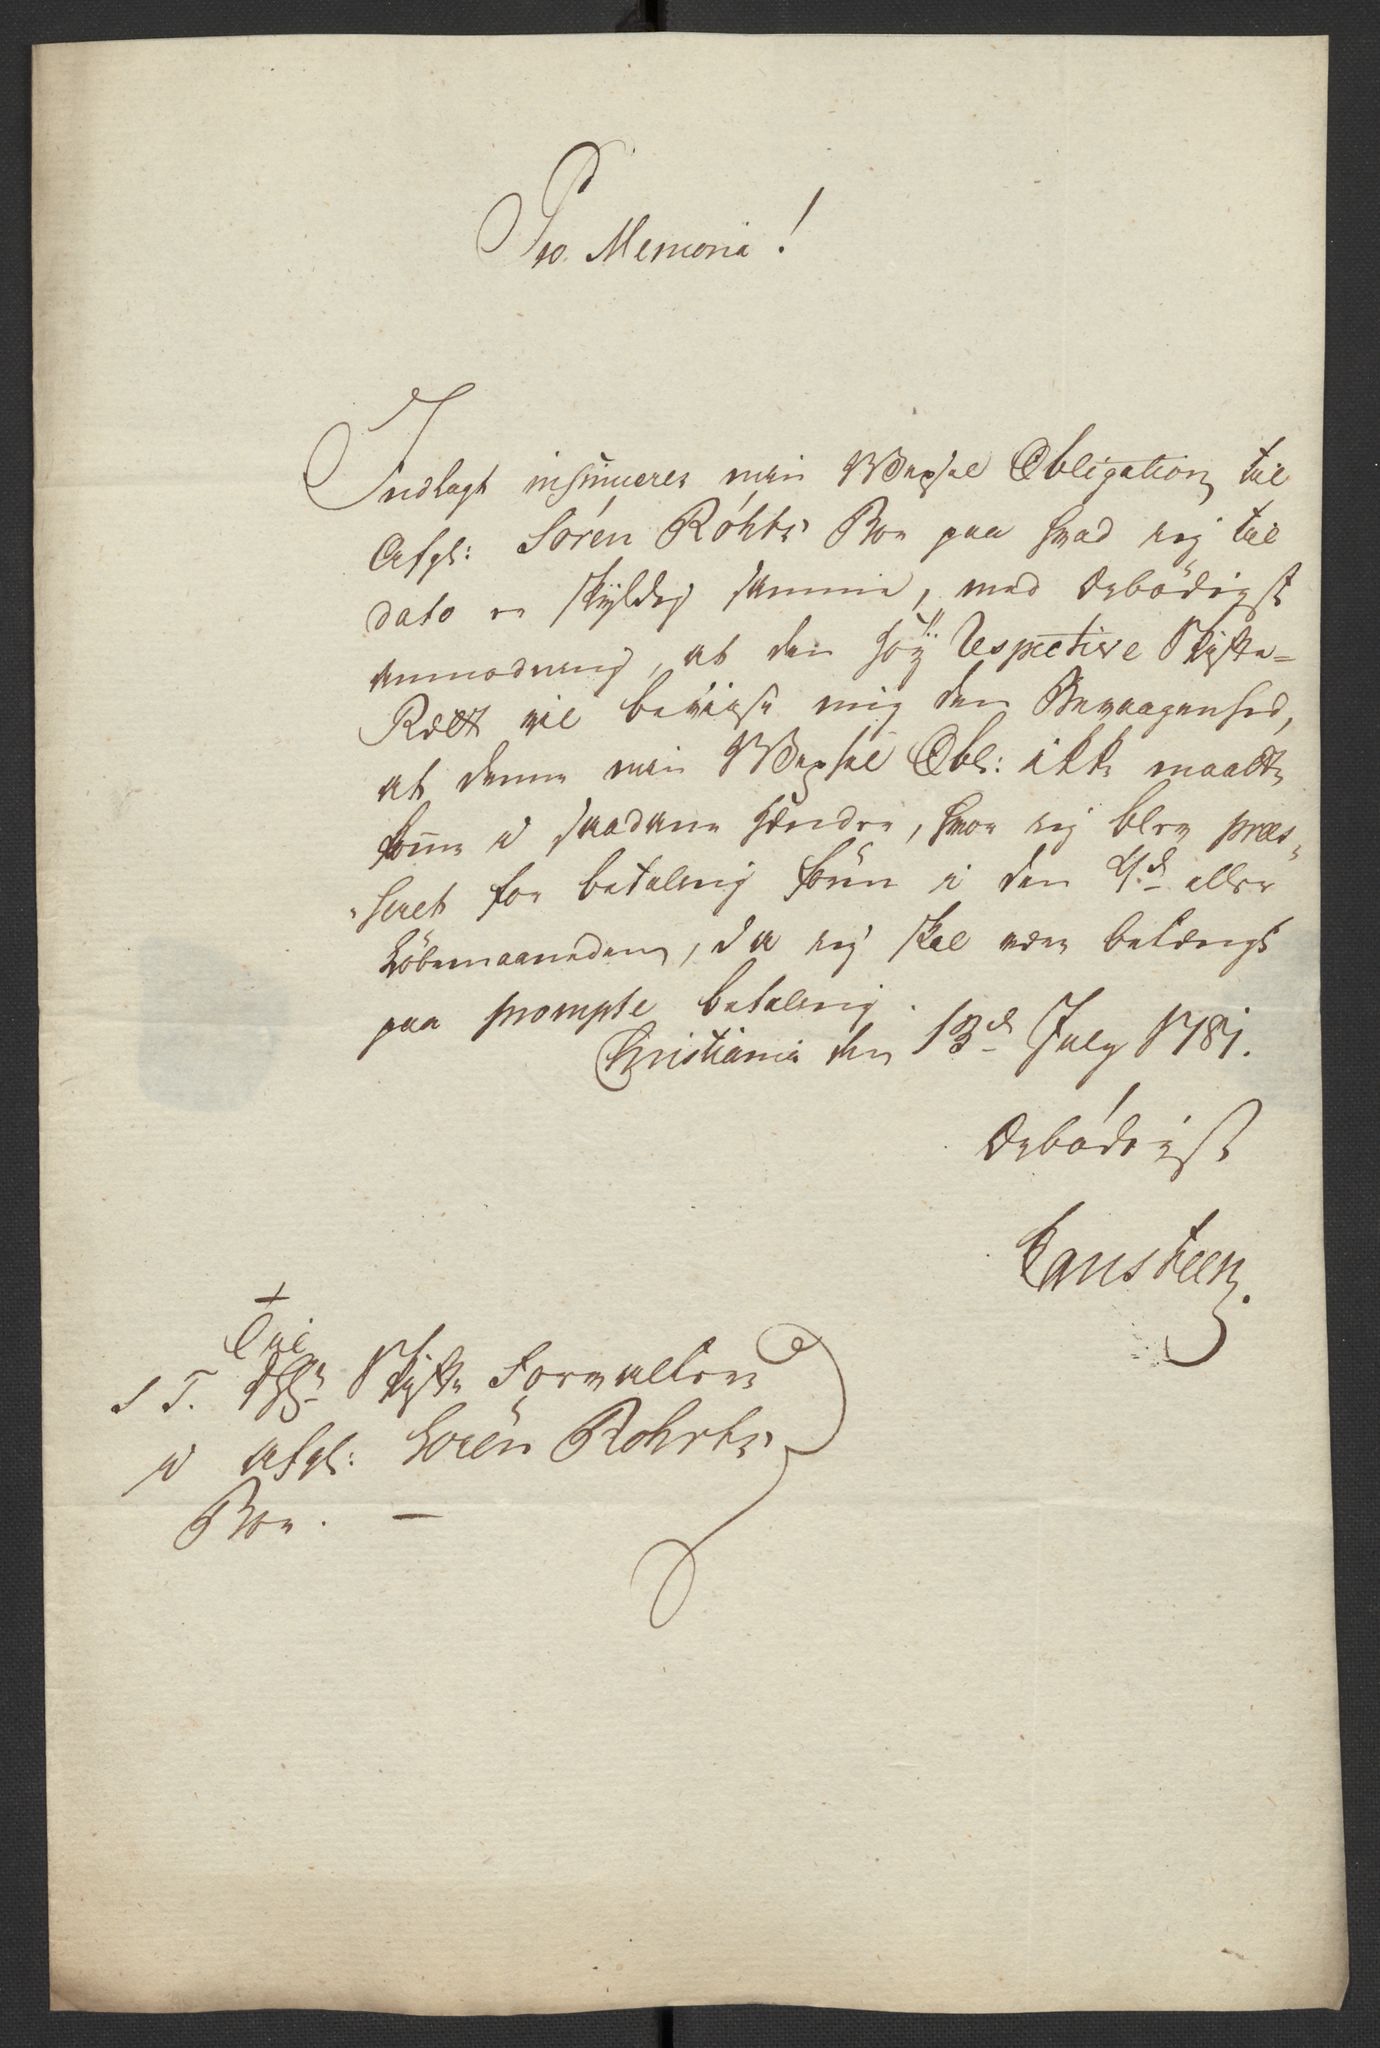 Pro Memoria!
Indlagt insinueres min Wexsel Obligation til
Afgl: Sören Röhts Boe paa hvad ieg til
dato er skyldig samme, med ærbödigst
anmodning, at den höÿ Respective Skifte-
Rætt vil beviise mig den Bevaagenhed,
at denne min Wexsel Obl: ikke maatte
komme i saadanne hænder, hvor ieg blev præs-
seret for betaling förend i den 4de eller
Löbemaaneden, da ieg skal være betænkt
paa prompte betaling.
Christiania den 13de July 1781.
Ærbödigst
Lansteen
Til
S T. Hrr Skifte Forvaltere
i afgl: Sören Rohrts
Boe. —